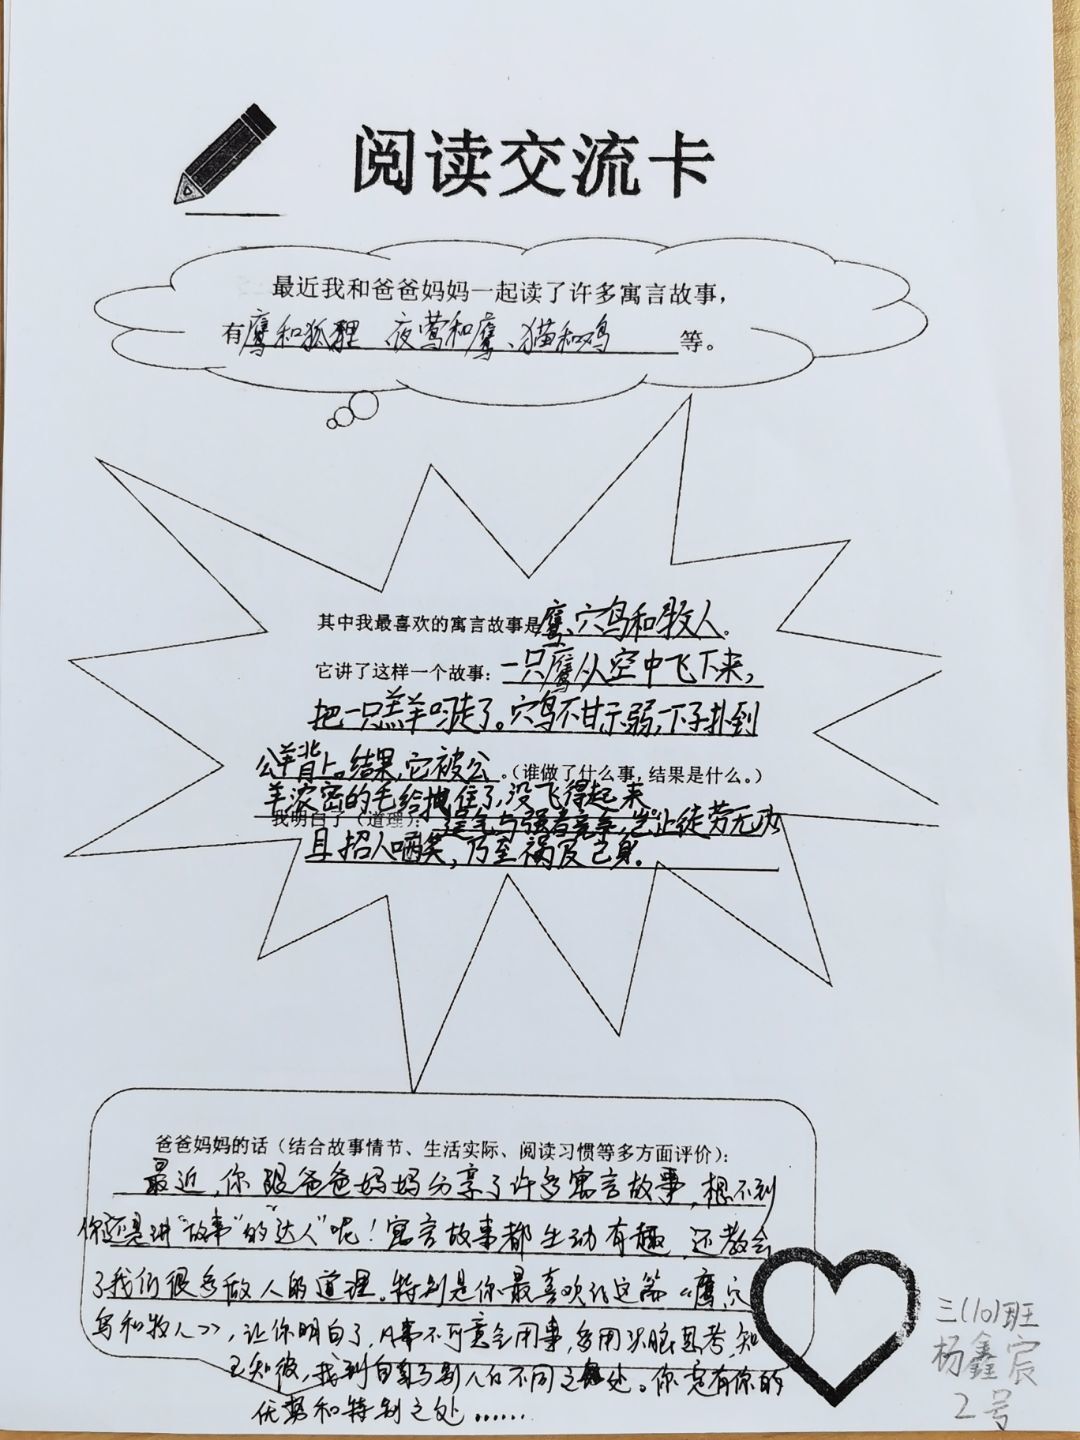 阅读交流卡
最近我和爸爸妈妈一起读了许多寓言故事，
有鹰和狐狸 夜莺和鹰、猫和鸡 等。
其中我最喜欢的寓言故事是鹰、穴鸟和牧人.
它讲了这样一个故事：一只鹰从空中飞下来，
把一只羔羊叼走了。穴鸟不甘示弱，一下子扑到
公羊背上。结果，它被公。（谁做了什么事，结果是什么。）
羊浓密的毛给拽住了，没飞得起来
我明白了（道理）： 与强者竞争，岂止徒劳无功
且招人哂笑，乃至祸及己身.
爸爸妈妈的话（结合故事情节、生活实际、阅读习惯等多方面评价）：
最近，你跟爸爸妈妈分享了许多寓言故事，想不到
你还是讲“故事”的“达人”呢！寓言故事都生动有趣，还教会
了我们很多做人的道理。特别是你最喜欢的这篇《鹰、穴
鸟和牧人》，让你明白了，凡事不可意气用事，多用头脑思考，知
己知彼，找到自己与别人的不同之处。你定有你的
优势和特别之处……
三(10)班
杨鑫宸
2号